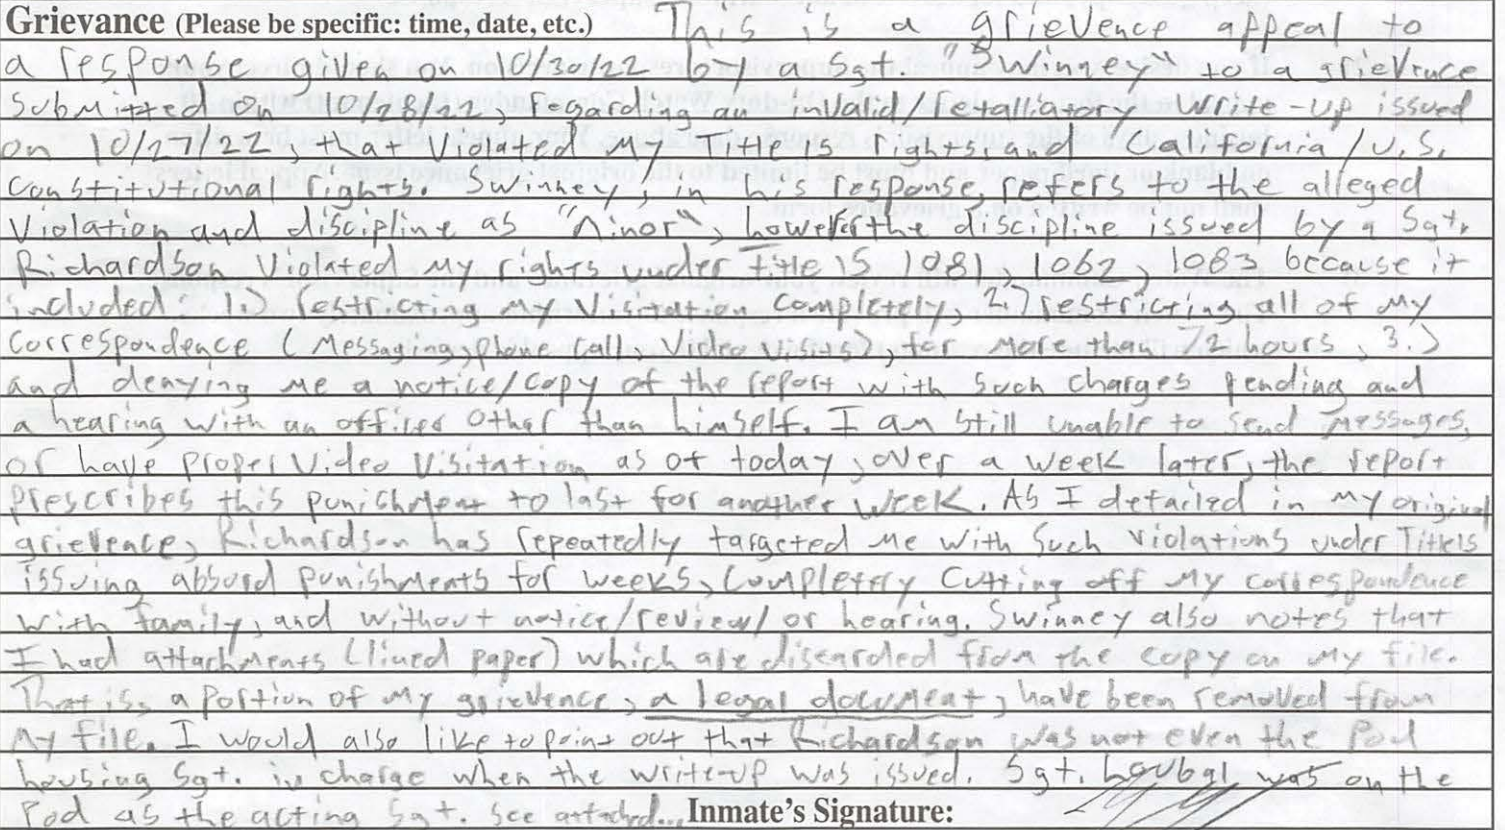 Grievance (Please be specific: time, date, etc.) This is a grievence appeal to
a response given on 10/30/22 by a Sgt. "Swinney" to a grievence
submitted on 10/28/22, regarding an invalid/retalliatory write-up issued
on 10/27/22, that violated my title 15 rights and California/U.S.
Constitutional rights. Swinney, in his response, refers to the alleged
violation and discipline as "Minor", however the discipline issued by a Sgt.
Richardson violated my rights under title 15 1081, 1062, 1083 because it
included: 1.) restricting my visitation completely, 2.) restricting all of my
correspondence (Messaging, phone call, video visits), for more than 72 hours, 3.)
and denying me a notice/copy of the report with such charges pending and
a hearing with an officer other than himself. I am still unable to send messages,
or have proper video visitation as of today, over a week later, the report
prescribes this punishment to last for another week. As I detailed in my original
grievence, Richardson has repeatedly targeted me with such violations under Title 15
issuing absurd punishments for weeks, completely cutting off my correspondence
with family, and without notice/review/or hearing. Swinney also notes that
I had attachments (lined paper) which are discarded from the copy on my file.
That is, a portion of my grievence, a legal document, have been removed from
my file. I would also like to point out that Richardson was not even the Pod
housing Sgt. in charge when the write-up was issued. Sgt. was on the
Pod as the acting Sgt. see attached... Inmate's Signature: